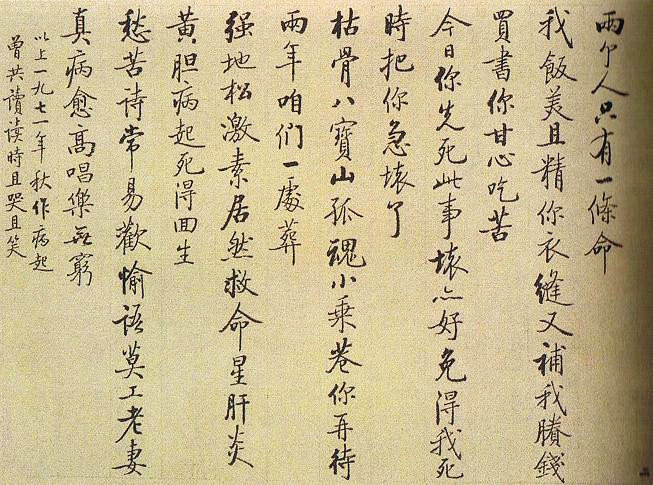 兩个人只有一條命
我飯美且精你衣縫又補我賸錢
買書你甘心吃苦
今日你先死此事壞亦好免得我死
時把你急壞了
枯骨八寶山孤魂小乘巷你再待
兩年咱们一處葬
强地松激素居然救命星肝炎
黄胆病起死得回生
愁苦诗常易歡愉語莫工老妻
真病愈高唱樂無窮
以上一九七一年秋作病起
曾共讀读時且哭且笑